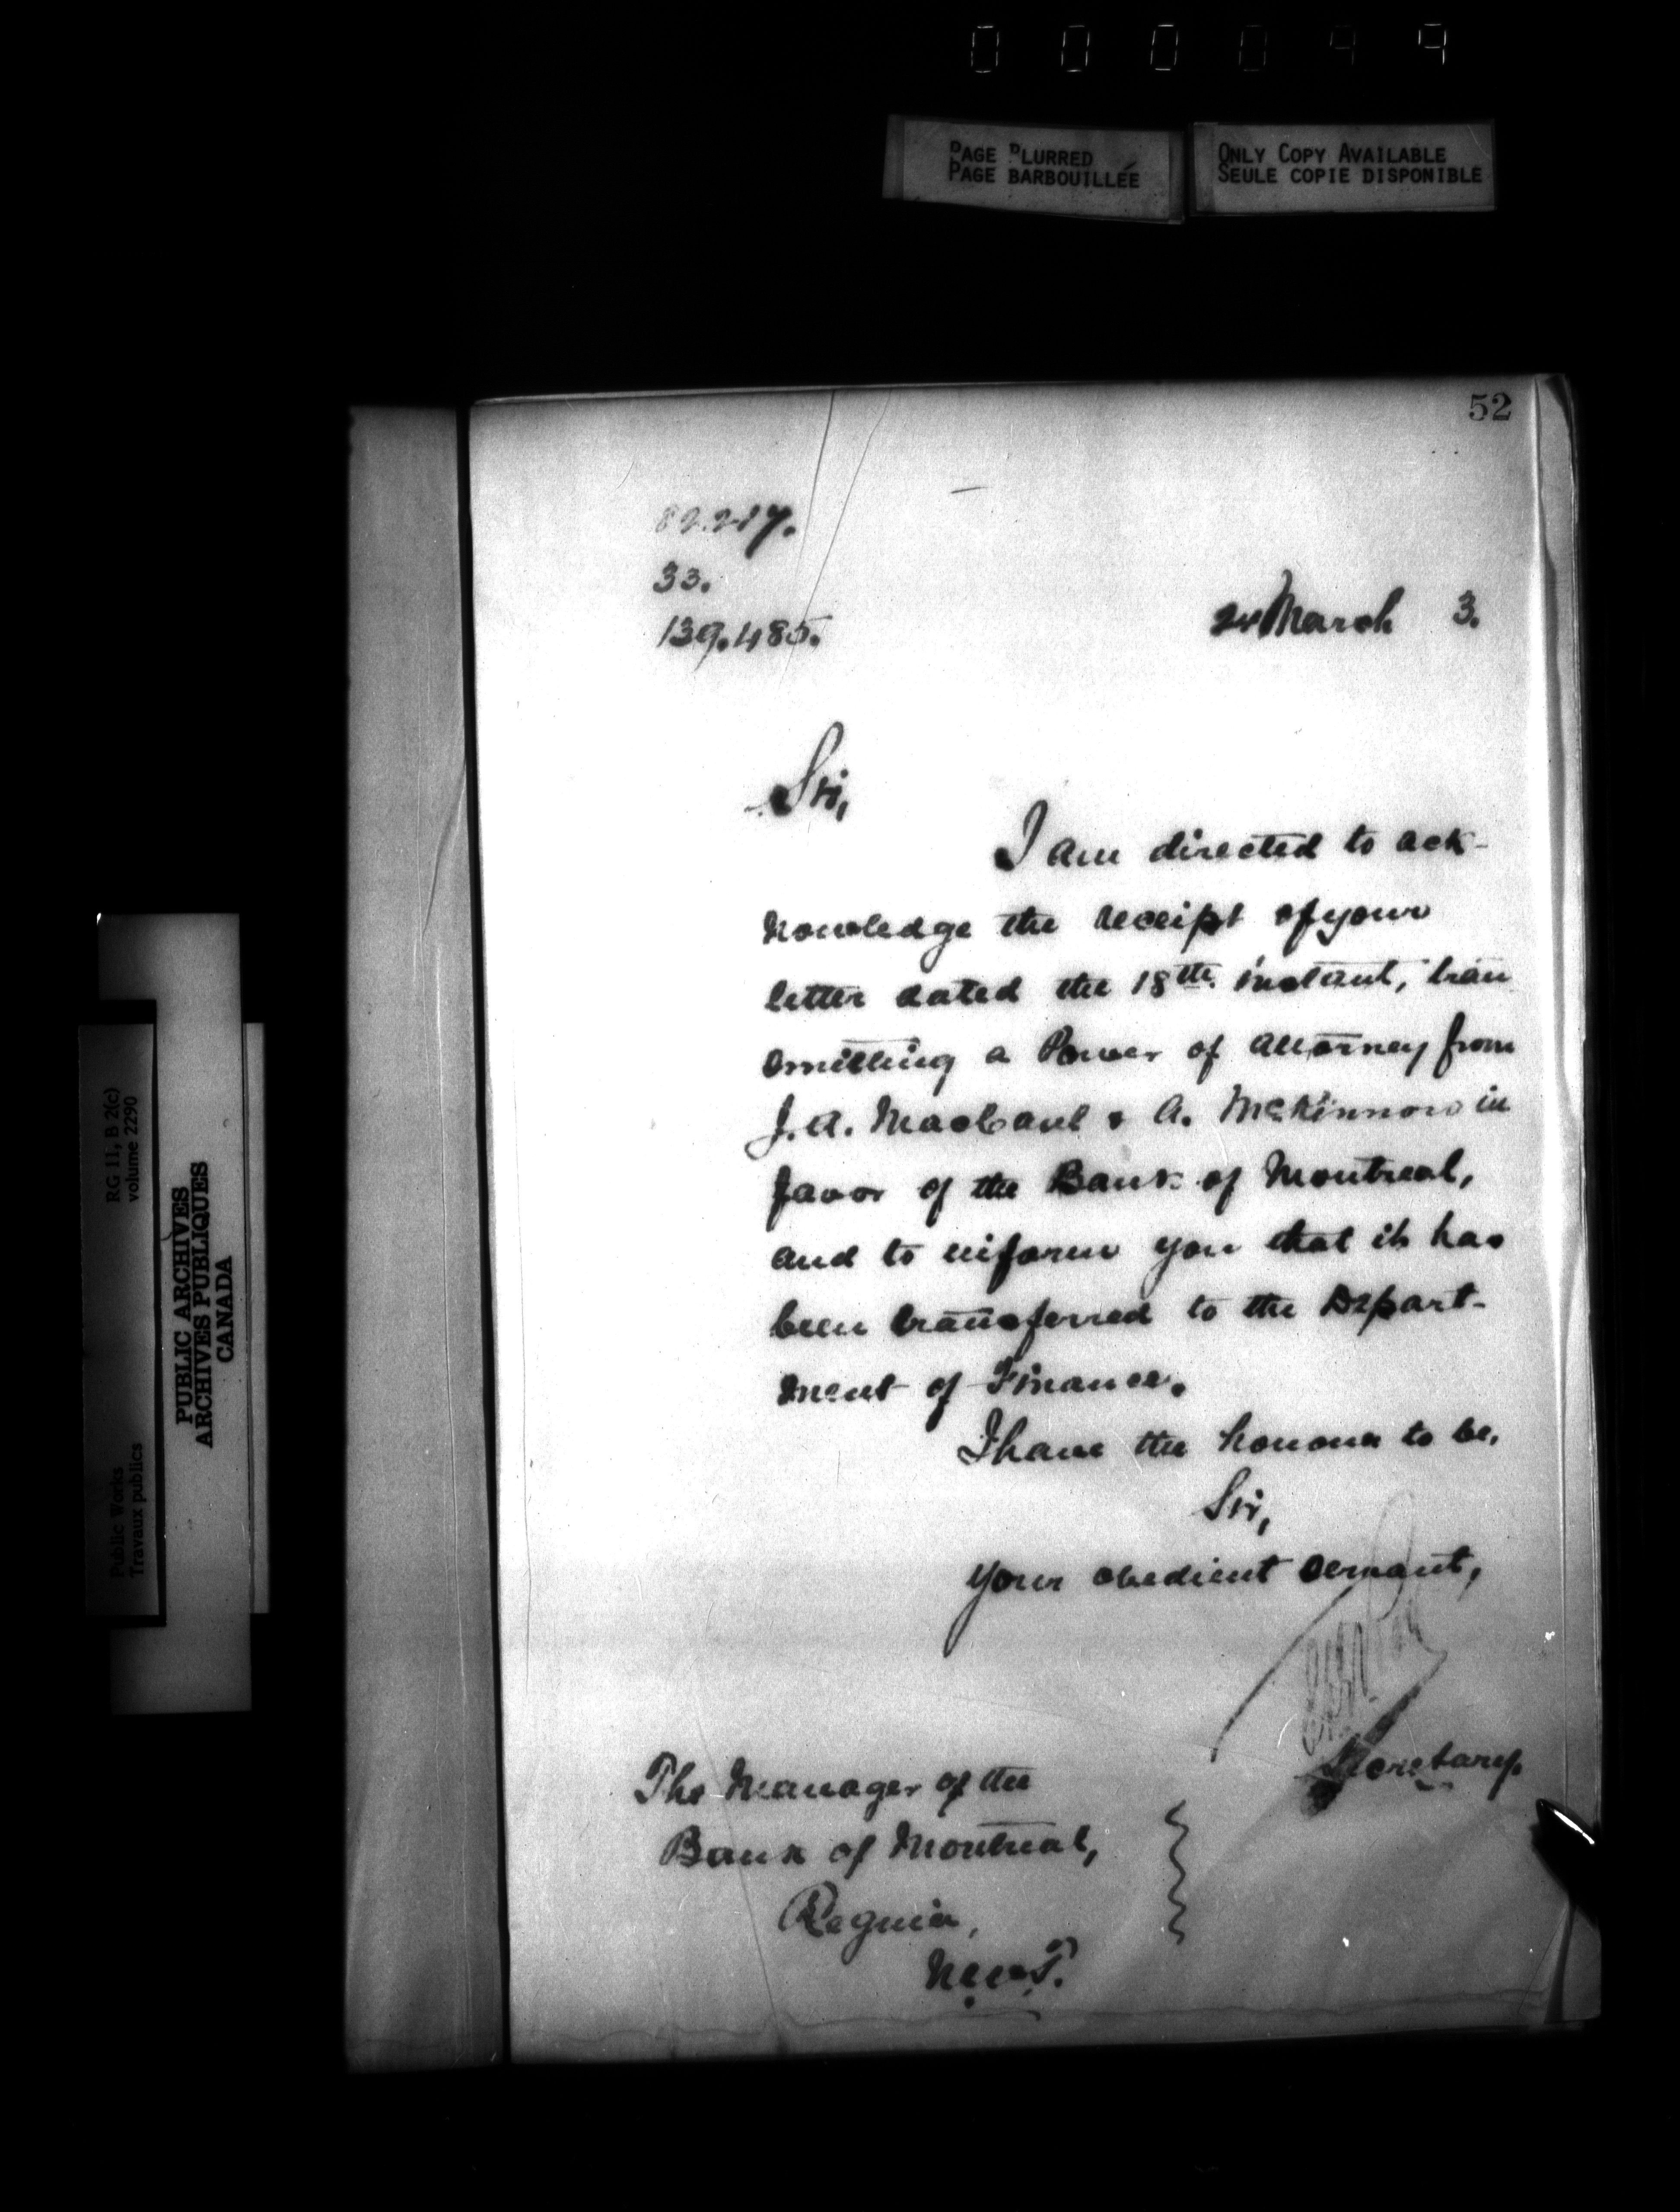 000099
PAGE BLURRED
PAGE BARBOUILLÉE
ONLY COPY AVAILABLE
SEULE COPIE DISPONIBLE
52
82.217.
33.
139.485.
24 March 3.
Sir,
I am directed to ack-
nowledge the receipt of your
letter dated the 18th. instant, tran
smitting a Power of Attorney from
J. A. MacCaul & A. McKinnon in
favor of the Bank of Montreal,
and to inform you that it has
been transferred to the Depart-
ment of Finance.
I have the honour to be,
Sir,
Your obedient servant,
Secretary.
The Manager of the
Bank of Montreal,
Regina,
N.W.T.
RG 11, B 2(c)
volume 2290
Public Works
Travaux publics
PUBLIC ARCHIVES
ARCHIVES PUBLIQUES
CANADA